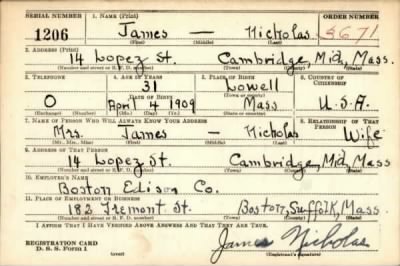 SERIAL NUMBER 1. NAME (Print) ORDER NUMBER
1206 James — Nicholas 3671
(First) (Middle) (Last)
2. ADDRESS (Print)
14 Lopez St. Cambridge, Mid, Mass.
(Number and street or R. F. D. number) (Town) (County) (State)
3. TELEPHONE 4. AGE IN YEARS 5. PLACE OF BIRTH 6. COUNTRY OF CITIZENSHIP
31 Lowell
O DATE OF BIRTH (Town or county)
April 4 1909 Mass U.S.A.
(Exchange) (Number) (Mo.) (Day) (Yr.) (State or country)
7. NAME OF PERSON WHO WILL ALWAYS KNOW YOUR ADDRESS 8. RELATIONSHIP OF THAT PERSON
Mrs. James — Nicholas Wife
(Mr., Mrs., Miss) (First) (Middle) (Last)
9. ADDRESS OF THAT PERSON
14 Lopez St. Cambridge, Mid, Mass
(Number and street or R. F. D. number) (Town) (County) (State)
10. EMPLOYER'S NAME
Boston Edison Co.
11. PLACE OF EMPLOYMENT OR BUSINESS
182 Tremont St. Boston, Suffolk, Mass.
(Number and street or R. F. D. number) (Town) (County) (State)
I AFFIRM THAT I HAVE VERIFIED ABOVE ANSWERS AND THAT THEY ARE TRUE.
REGISTRATION CARD
D. S. S. Form 1 James Nicholas
(Registrant's signature)